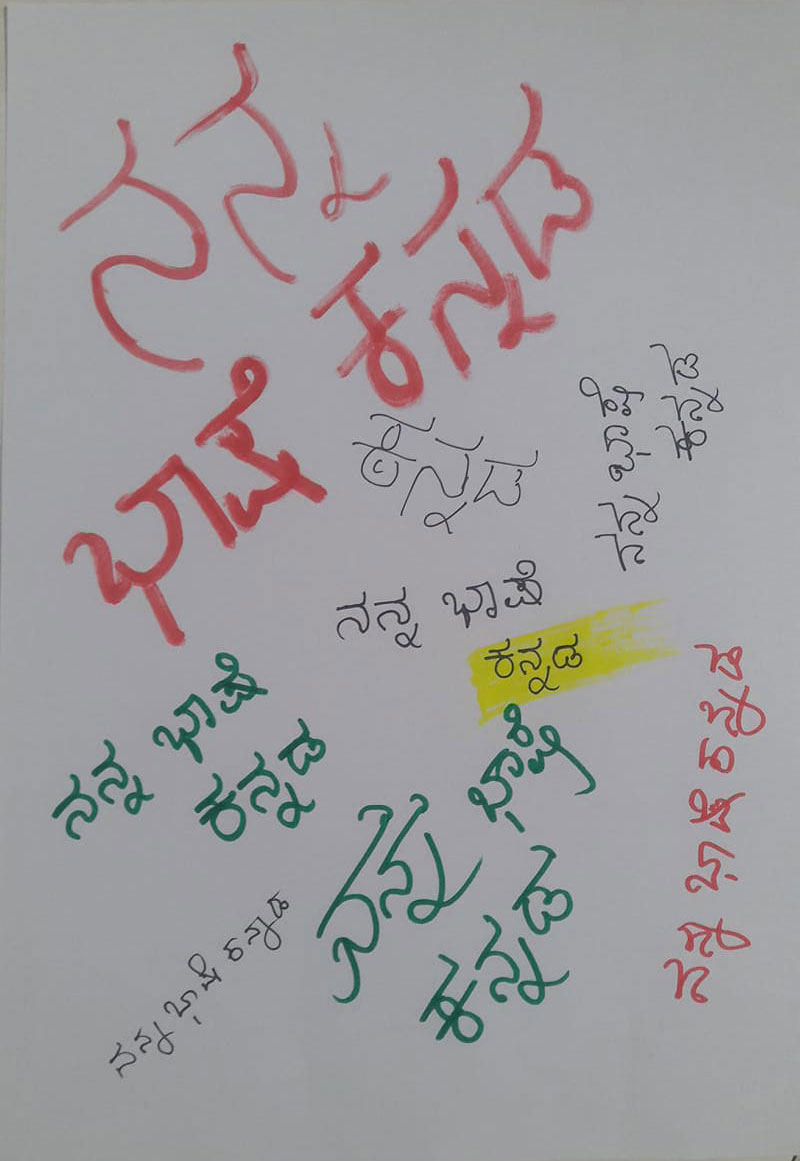 ನನ್ನ
ಕನ್ನಡ
ಭಾಷೆ
ಕನ್ನಡ
ನನ್ನ ಭಾಷೆ
ಕನ್ನಡ
ನನ್ನ ಭಾಷೆ
ಕನ್ನಡ
ನನ್ನ ಭಾಷೆ
ಕನ್ನಡ
ನನ್ನ ಭಾಷೆ
ಕನ್ನಡ
ನನ್ನ ಭಾಷೆ ಕನ್ನಡ
ನನ್ನ ಭಾಷೆ ಕನ್ನಡ